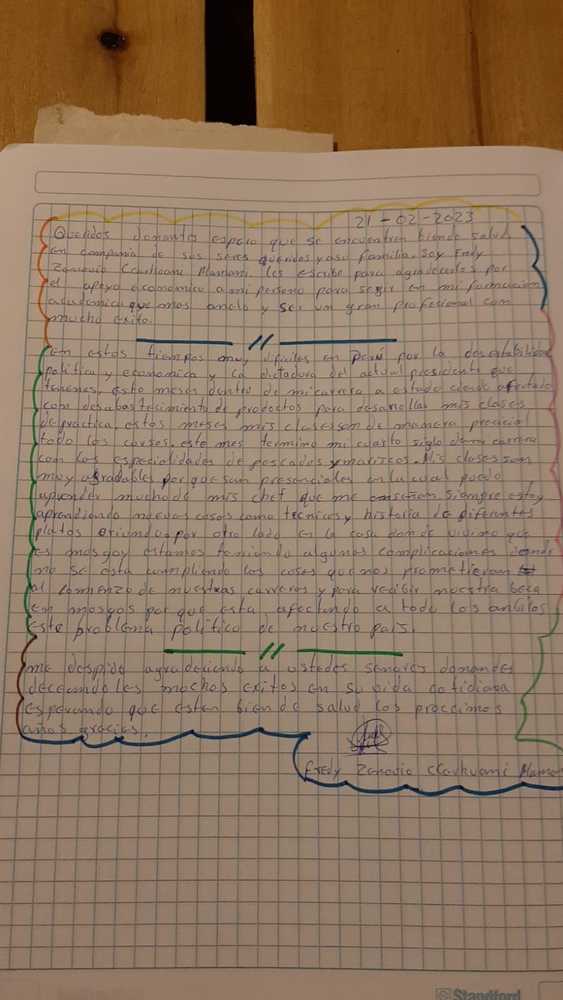 21-02-2023
Queridos donantes espero que se encuentren bien de salud
en compania de sus seres queridos y asu familia. Soy Fredy
Zenovio Ccahuami Mamani. les escribo para agradecerles por
el apoyo economico a mi persona para segir en mi formacion
academica que mas anelo y ser un gran profecional con
mucho exito.
//
En estos tiempos muy dificiles en Peru por la desestabilidad
politica y economica y la dictadura del actual presidente que
tenemos, este meses dentro de mi carrera a estado siendo afectado
con desabastesimiento de prodoctos para desarrollar mis clases
de practica, estos meses mis clases son de manera precencial
todo los curses. este mes termino mi cuarto siglo de mi carrera
con las especialidades de pescados y mariscos. Mis clases son
muy agradables por que son presenciales en la cual puedo
aprender mucho de mis chef que me enseñan siempre estoy
aprendiendo nuevas cosas como tecnicas y historia de diferentes
platos por otro lado en la casa donde vivimo que
es masgay estamos teniendo algunas complicaciones donde
no se esta cumpliendo las cosas que nos prometieron
al comienzo de nuestras carreras y para recibir nuestra beca
en mosqoy por que esta afectando a todo los ambitos
este problema politico de nuestro pais.
//
me despido agradeciendo a ustedes señores donantes
deceandoles muchos exitos en su vida cotidiana
esperando que esten bien de salud los proccimos
años gracias.
Fredy Zenovio Ccahuami Mamani
Standford